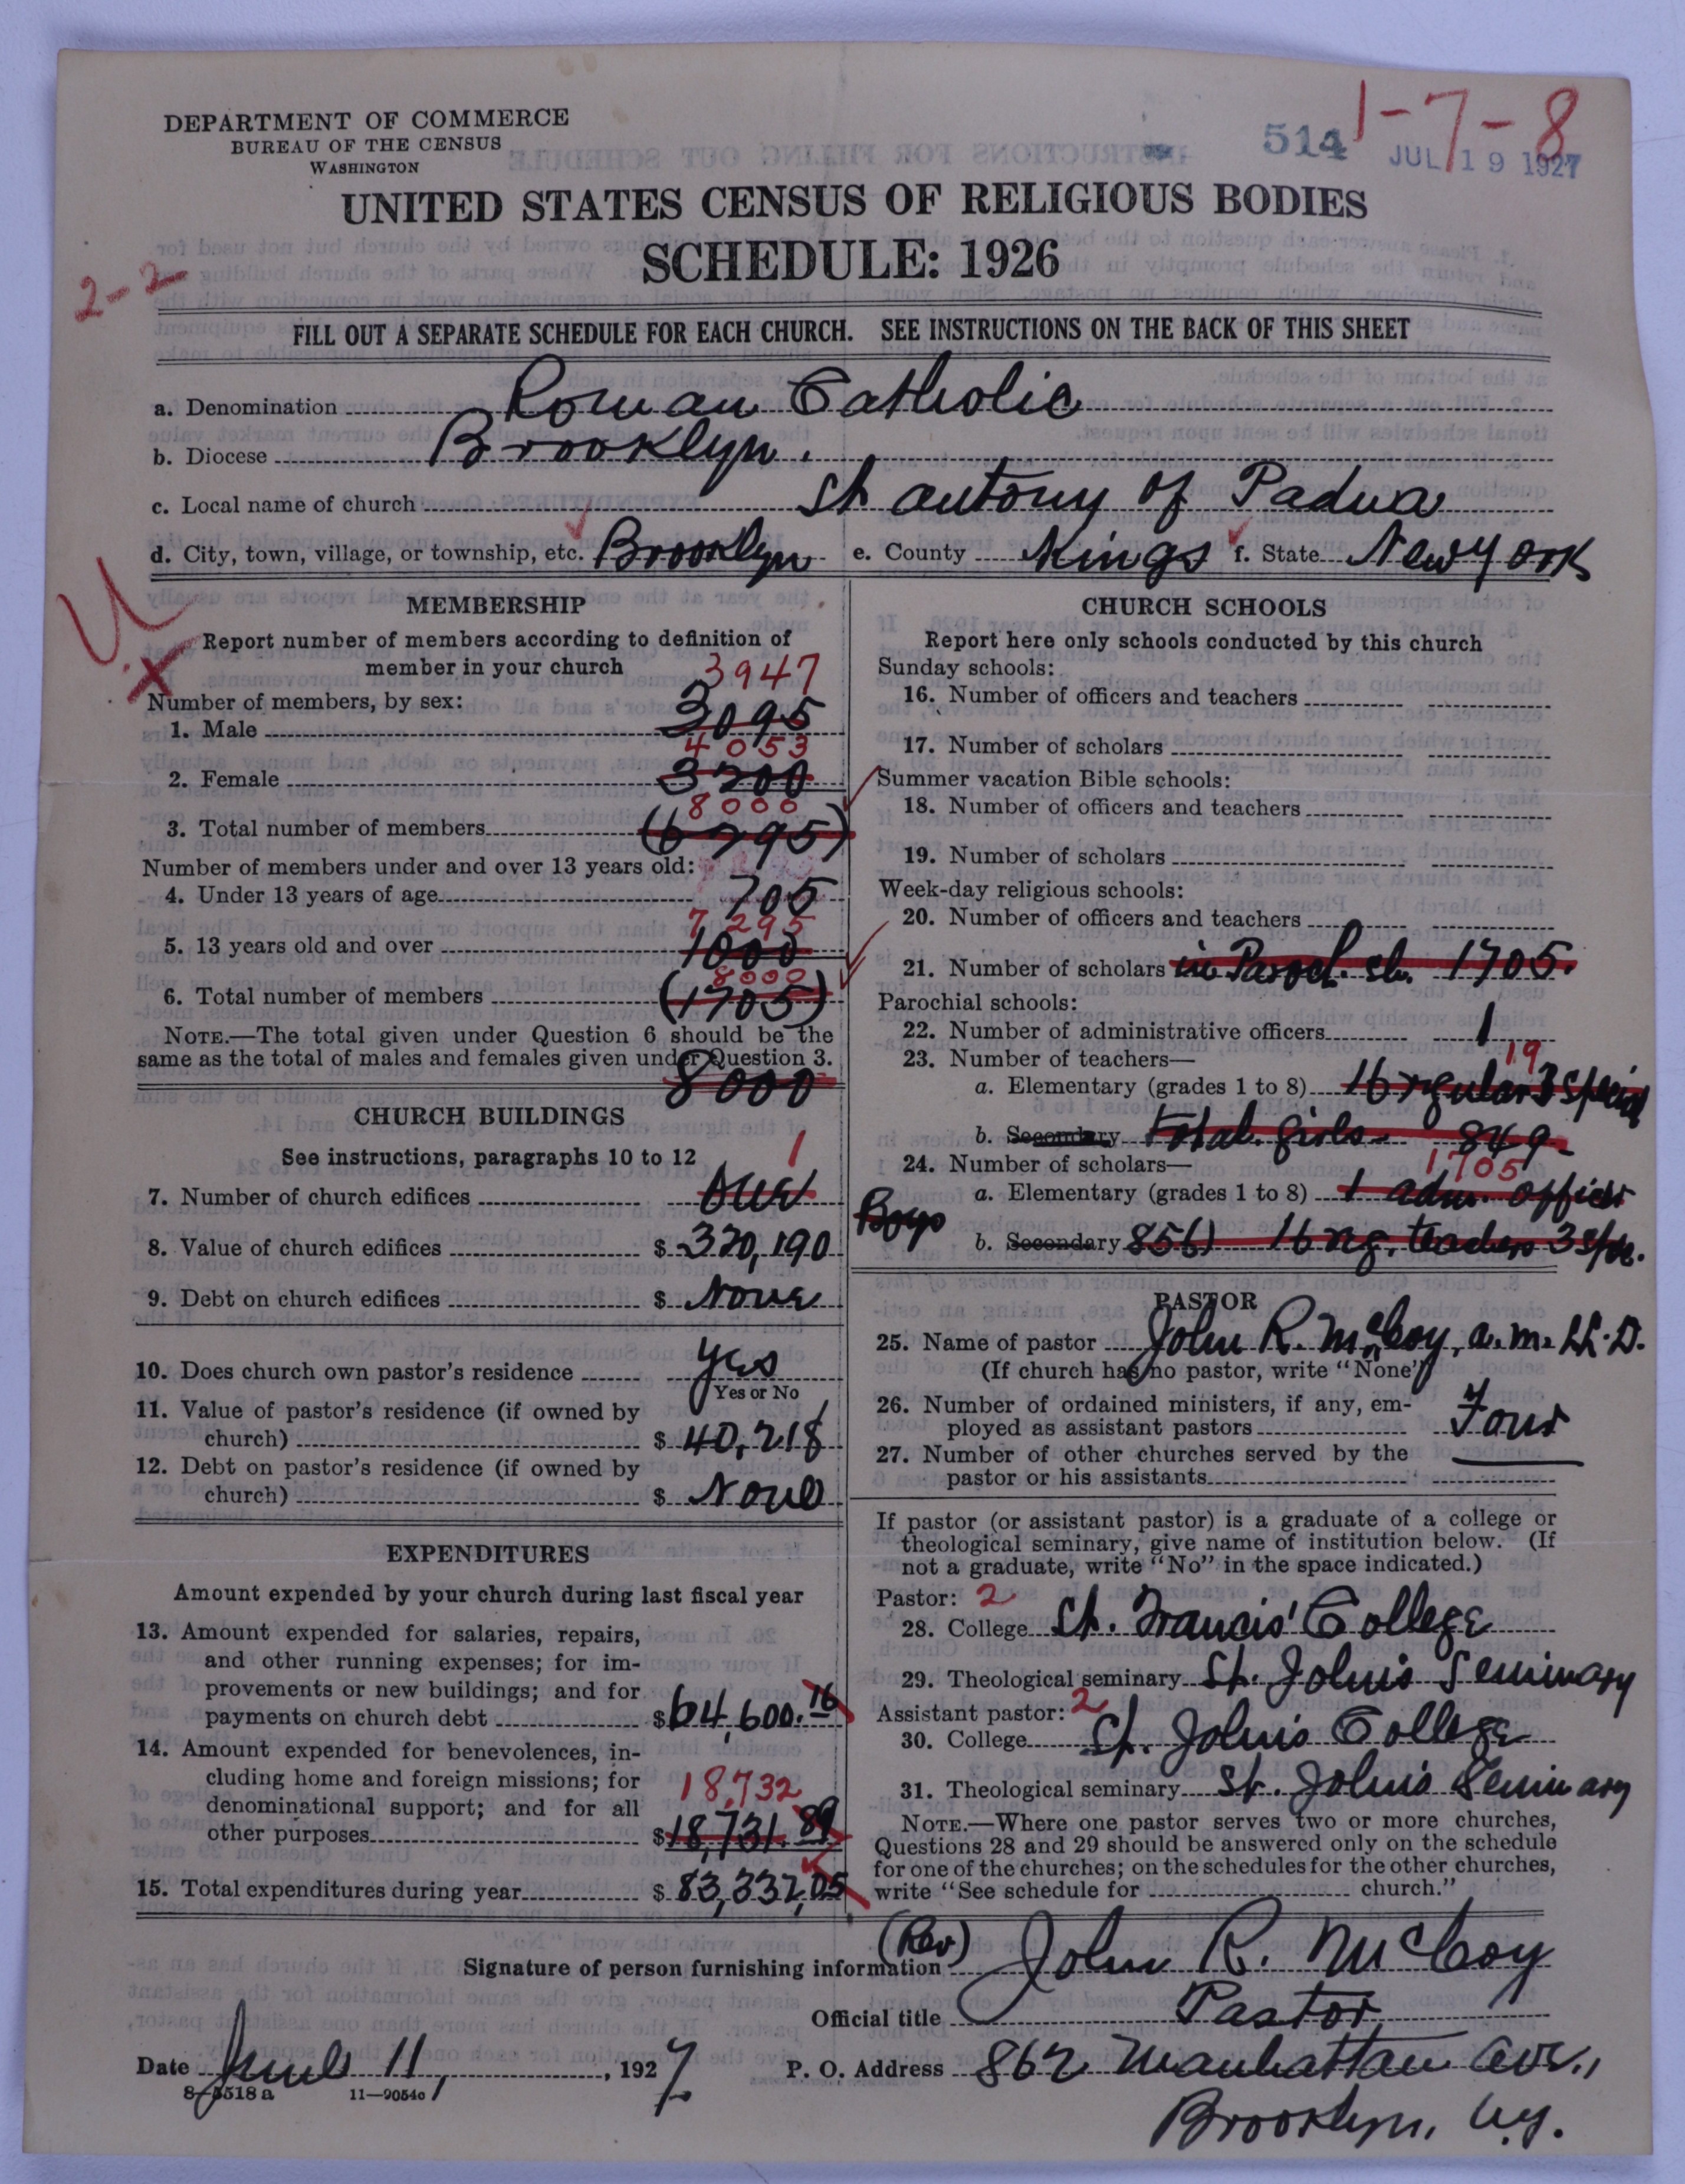 DEPARTMENT OF COMMERCE
BUREAU OF THE CENSUS
WASHINGTON
514
JUL 19 1927
1-7-8
UNITED STATES CENSUS OF RELIGIOUS BODIES
SCHEDULE: 1926
2-2
FILL OUT A SEPARATE SCHEDULE FOR EACH CHURCH. SEE INSTRUCTIONS ON THE BACK OF THIS SHEET
a. Denomination Roman Catholic
b. Diocese Brooklyn.
c. Local name of church St Antony of Padua
d. City, town, village, or township, etc. Brooklyn e. County Kings f. State New York
U
X
MEMBERSHIP
Report number of members according to definition of
member in your church
3947
Number of members, by sex:
1. Male 3095
4053
2. Female 3200
8000
3. Total number of members (6295)
Number of members under and over 13 years old:
4. Under 13 years of age 705
7295
5. 13 years old and over 1000
8000
6. Total number of members (1705)
NOTE.—The total given under Question 6 should be the
same as the total of males and females given under Question 3.
8000
CHURCH BUILDINGS
See instructions, paragraphs 10 to 12
1
7. Number of church edifices One
8. Value of church edifices $ 320,190
9. Debt on church edifices $ None
10. Does church own pastor's residence Yes
Yes or No
11. Value of pastor's residence (if owned by
church) $ 40,218
12. Debt on pastor's residence (if owned by
church) $ None
EXPENDITURES
Amount expended by your church during last fiscal year
13. Amount expended for salaries, repairs,
and other running expenses; for im-
provements or new buildings; and for
payments on church debt $ 64,600.16
14. Amount expended for benevolences, in-
cluding home and foreign missions; for
denominational support; and for all
18,732
other purposes $ 18,731.89
15. Total expenditures during year $ 83,332,05
CHURCH SCHOOLS
Report here only schools conducted by this church
Sunday schools:
16. Number of officers and teachers
17. Number of scholars
Summer vacation Bible schools:
18. Number of officers and teachers
19. Number of scholars
Week-day religious schools:
20. Number of officers and teachers
21. Number of scholars in Paroch. sch. 1705.
Parochial schools:
22. Number of administrative officers 1
23. Number of teachers—
19
a. Elementary (grades 1 to 8) 16 regular 3 special
b. Secondary total girls 849
24. Number of scholars—
1705
a. Elementary (grades 1 to 8) 1 adm. officer
Boys
b. Secondary 856) 16 reg. teachers 3 spec.
PASTOR
25. Name of pastor John R. McCoy, A.M. LL.D.
(If church has no pastor, write "None")
26. Number of ordained ministers, if any, em-
ployed as assistant pastors Four
27. Number of other churches served by the
pastor or his assistants
If pastor (or assistant pastor) is a graduate of a college or
theological seminary, give name of institution below. (If
not a graduate, write "No" in the space indicated.)
Pastor: 2
28. College St. Francis' College
29. Theological seminary St. John's Seminary
Assistant pastor: 2
30. College St. John's College
31. Theological seminary St. John's Seminary
NOTE.—Where one pastor serves two or more churches,
Questions 28 and 29 should be answered only on the schedule
for one of the churches; on the schedules for the other churches,
write "See schedule for church."
Signature of person furnishing information (Rev) John R. McCoy
Official title Pastor
Date June 11, 1927 P. O. Address 862 Manhattan Ave.,
8-5518 a 11—9054c
Brooklyn, N.Y.